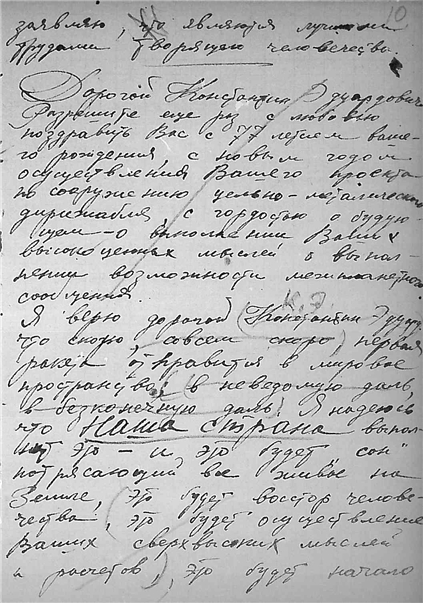 10
заявляю, это являются лучшими
трудами творящего человечества.
Дорогой Константин Эдуардович
Разрешите еще раз с любовью
поздравить Вас с 77 летием ваше-
го рождения, с новым годом
осуществления Вашего проекта
по сооружению цельно-металлического
дирижабля, с гордостью о будую-
щем - о выполнении Ваших
высокоценных мыслей о выпол-
нении возможности межпланетного
сообщения.
К. Э.
Я верю дорогой (Константин Эдуард)
что скоро, совсем скоро, первая
ракета отправится в мировое
пространство в неведомую даль,
в безконечную даль! Я надеюсь
что Наша Страна выпол-
нит это - и это будет "сон"
потрясающий все живое на
Земле, это будет восторг челове-
чества, это будет осуществление
Ваших сверхвысоких мыслей
и расчетов, это будет начало